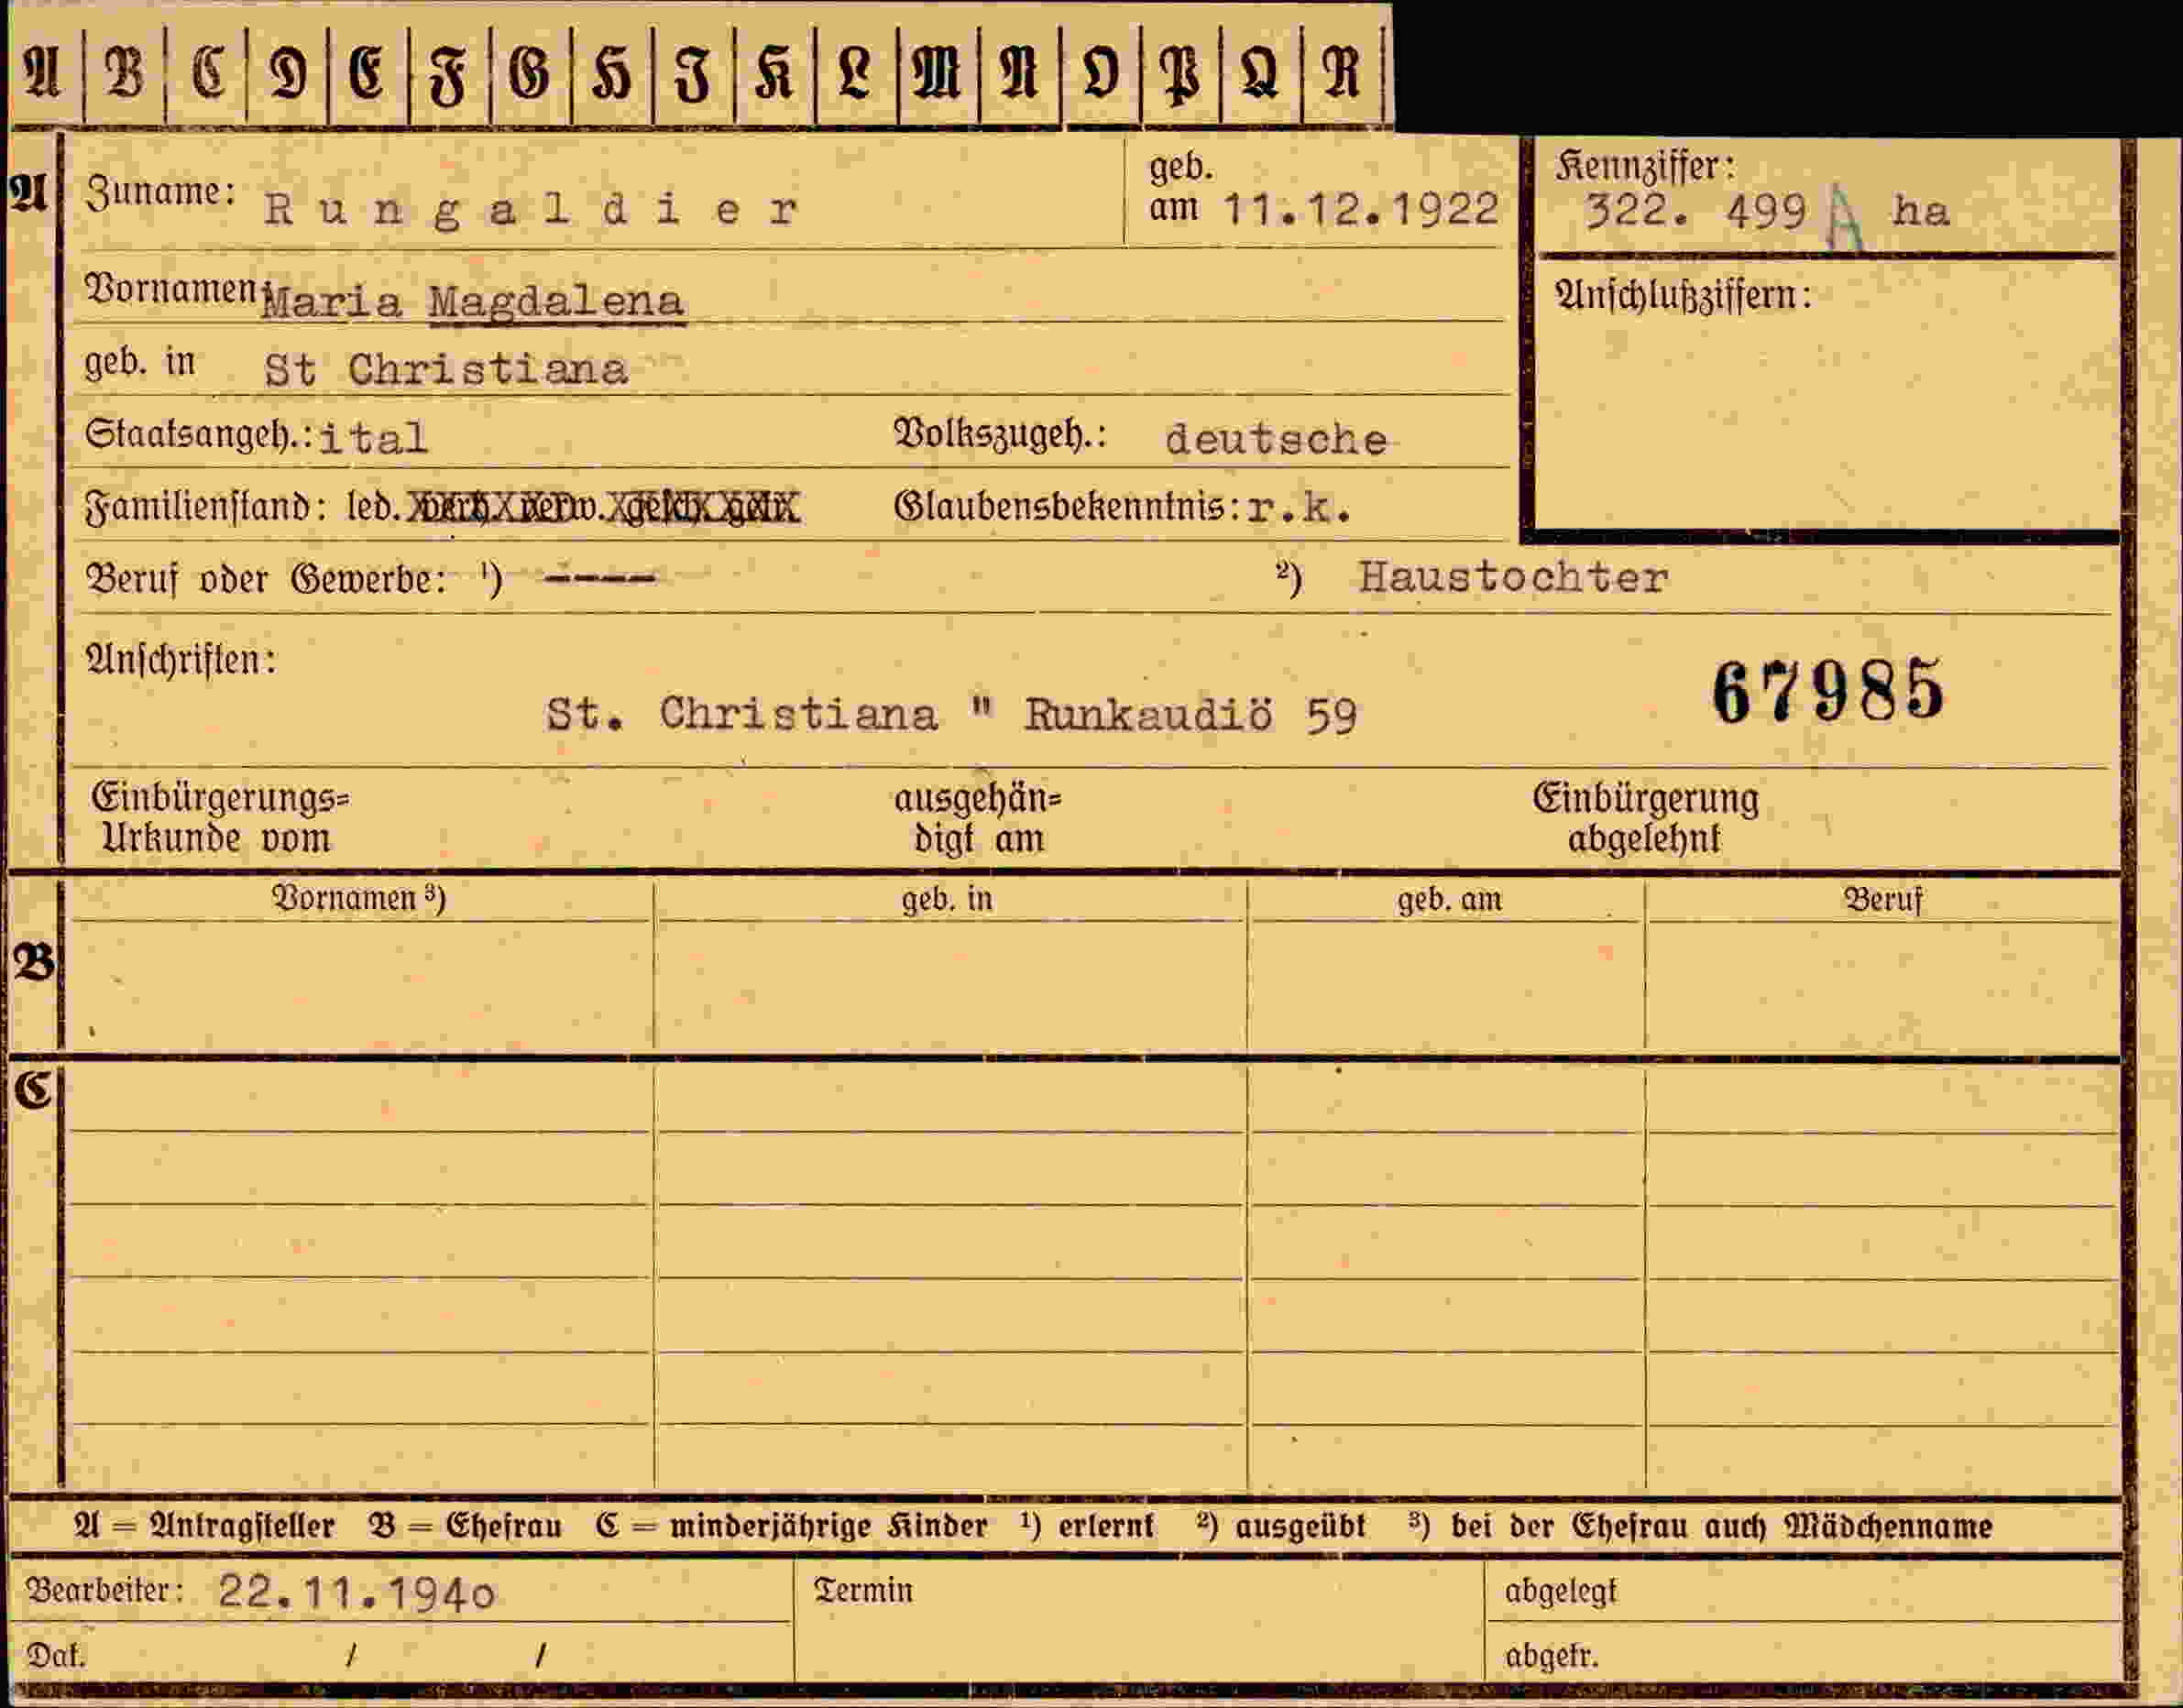 A B C D E F G H I K L M N O P Q R
A Zuname: Rungaldier geb. am 11.12.1922 Kennziffer: 322. 499 A ha
Vornamen: Maria Magdalena Anschlußziffern:
geb. in St Christiana
Staatsangeh.: ital Volkszugeh.: deutsche
Familienstand: led. verh. verw. gesch. getr. Glaubensbekenntnis: r.k.
Beruf oder Gewerbe: ¹) ---- ²) Haustochter
Anschriften: 67985
St. Christiana " Runkaudiö 59
Einbürgerungs= ausgehän= Einbürgerung
Urkunde vom digt am abgelehnt
Vornamen ³) geb. in geb. am Beruf
B
C
A = Antragsteller B = Ehefrau C = minderjährige Kinder ¹) erlernt ²) ausgeübt ³) bei der Ehefrau auch Mädchenname
Bearbeiter: 22.11.194o Termin abgelegt
Dat. / / abgetr.